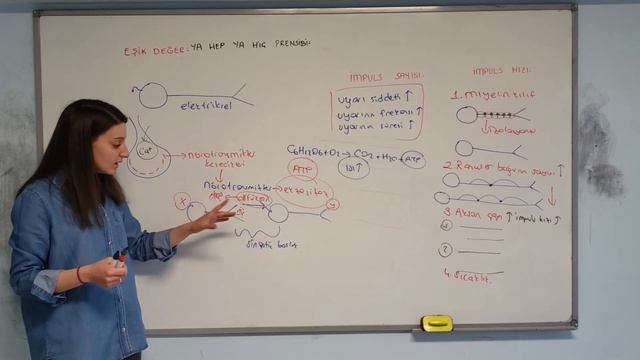 EŞİK DEĞER: YA HEP YA HİÇ PRENSİBİ:
elektriksel
Ca+
nörotransmitter
kesecikleri
Nörotransmitter → ekzositoz
ATP
difüzyon
X
Y
sinaptik boşluk
İMPULS SAYISI:
uyarı şiddeti ↑
uyarının frekansı ↑
uyarının süresi ↑
C6H12O6+O2 → CO2 + H2O + ATP
ATP
ISI ↑
İMPULS HIZI:
1. Miyelin kılıf
izolasyon
2. Ranvier boğum sayısı ↑
3. Akson çapı ↑ impuls hızı ↑
1
2
4. Sıcaklık.